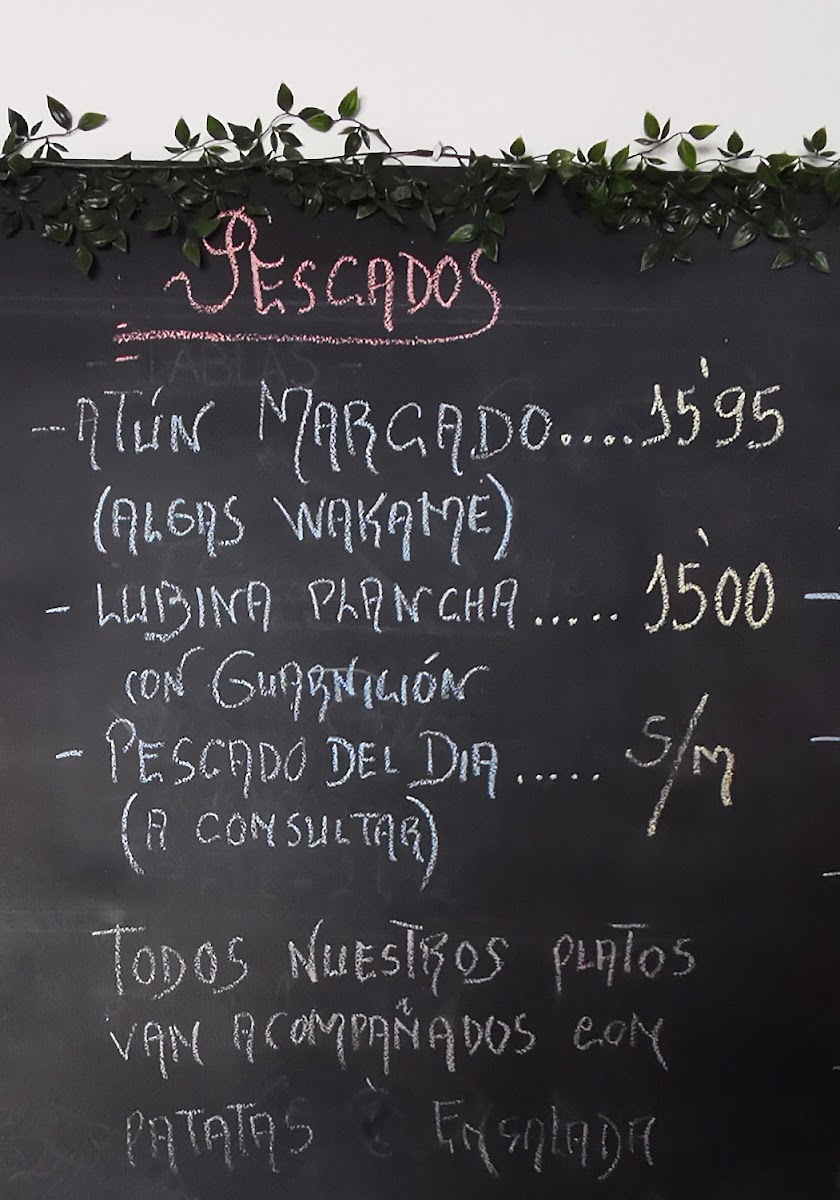 PESCADOS
- TABLAS -
- ATÚN MARCADO....15'95
(ALGAS WAKAME)
- LUBINA PLANCHA ..... 15'00
CON GUARNICIÓN
- PESCADO DEL DIA ..... S/M
(A CONSULTAR)
TODOS NUESTROS PLATOS
VAN ACOMPAÑADOS CON
PATATAS Ò ENSALADA